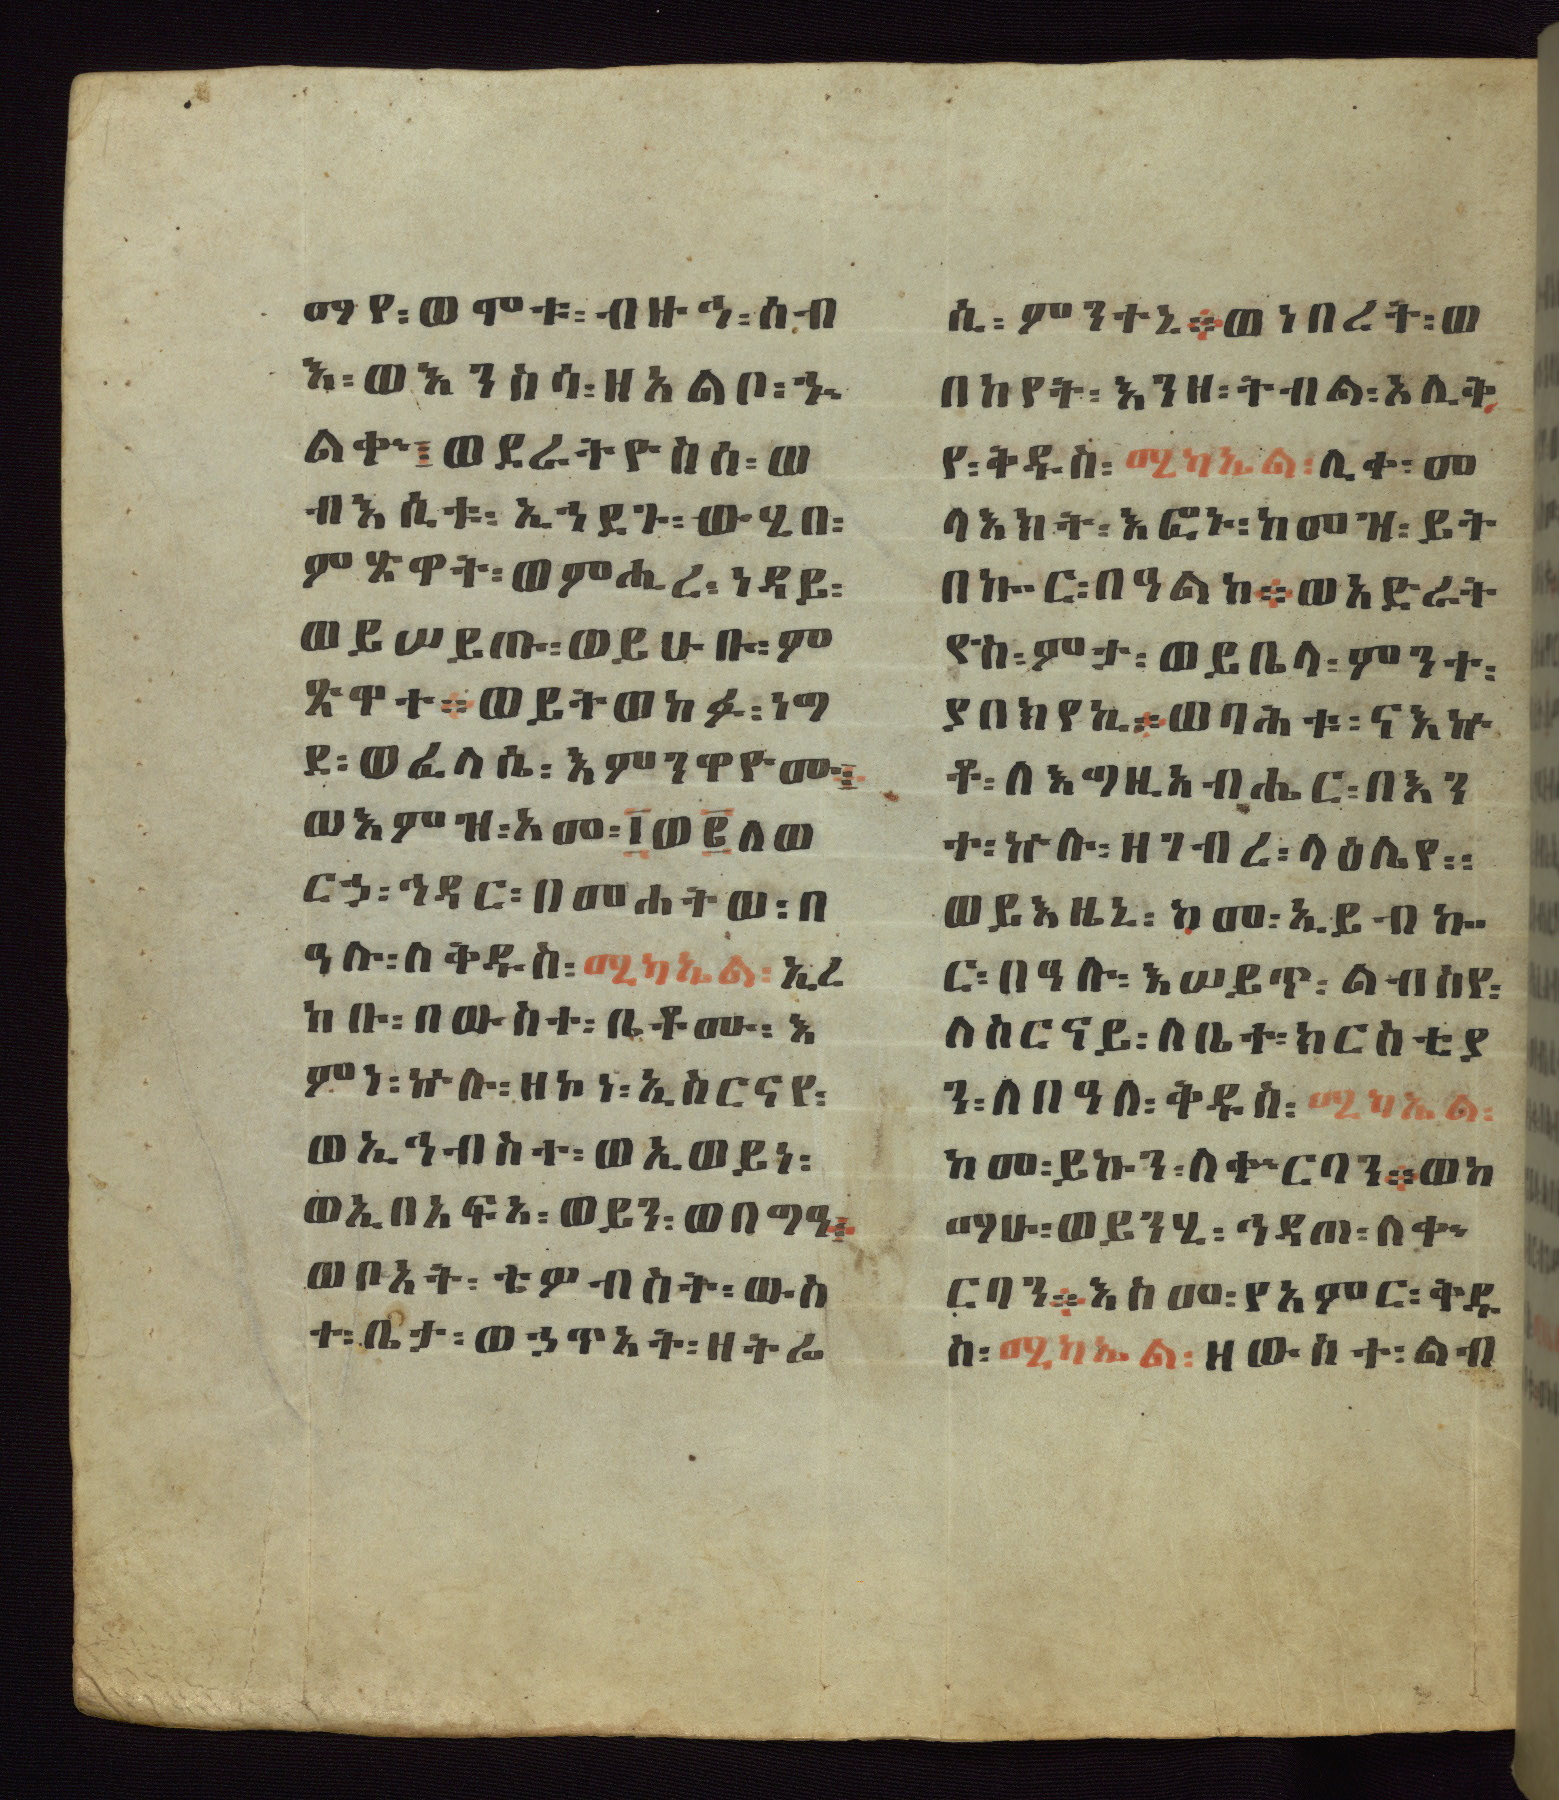 ማየ፡ ወሞቱ፡ ብዙኃ፡ ሰብ
እ፡ ወእንስሳ፡ ዘአልቦ፡ ኍ
ልቍ፤ ወደራትዮስሰ፡ ወ
ብእሲቱ፡ ኢኀደጉ፡ ውሂበ፡
ምጽዋት፡ ወምሒረ፡ ነዳይ፡
ወይሠይጡ፡ ወይሁቡ፡ ም
ጽዋተ። ወይትወከፉ፡ ነግ
ደ፡ ወፈላሴ፡ እምንዋዮሙ፤
ወእምዝ፡ አመ፡ ፲ወ፪ ለወ
ርኃ፡ ኅዳር፡ በመሐትው፡ በ
ዓሉ፡ ለቅዱስ፡ ሚካኤል፡ ኢረ
ከቡ፡ በውስተ፡ ቤቶሙ፡ እ
ምነ፡ ኵሉ፡ ዘኮነ፡ ኢስርናየ፡
ወኢኅብስተ፡ ወኢወይነ፡
ወኢበአፍአ፡ ወይን፡ ወበግዓ፤
ወቦአት፡ ቴምብስት፡ ውስ
ተ፡ ቤታ፡ ወኃጥአት፡ ዘትሬ
ሲ፡ ምንተኒ። ወነበረት፡ ወ
በከየት፡ እንዘ፡ ትብል፡ እሊቅ
የ፡ ቅዱስ፡ ሚካኤል፡ ሊቀ፡ መ
ላእክት፡ እፎኑ፡ ከመዝ፡ ይት
በኰር፡ በዓልከ። ወእድራት
ዮስ፡ ምታ፡ ወይቤላ፡ ምንተ፡
ያበክየኪ። ወባሕቱ፡ ናእኵ
ቶ፡ ለእግዚአብሔር፡ በእን
ተ፡ ኵሉ፡ ዘገብረ፡ ላዕሌየ፡፡
ወይእዜኒ፡ ከመ፡ ኢይብኰ
ር፡ በዓሉ፡ እሠይጥ፡ ልብስየ፡
ለስርናይ፡ ለቤተ፡ ክርስቲያ
ን፡ ለበዓለ፡ ቅዱስ፡ ሚካኤል፡
ከመ፡ ይኩን፡ ለቍርባን። ወከ
ማሁ፡ ወይንሂ፡ ኅዳጠ፡ ለቍ
ርባን። እስመ፡ የአምር፡ ቅዱ
ስ፡ ሚካኤል፡ ዘውስተ፡ ልብ